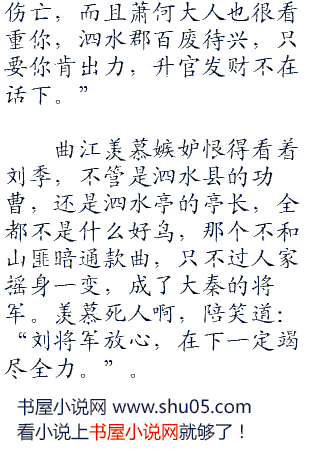 伤亡，而且萧何大人也很看
重你，泗水郡百废待兴，只
要你肯出力，升官发财不在
话下。”
曲江羡慕嫉妒恨得看着
刘季，不管是泗水县的功
曹，还是泗水亭的亭长，全
都不是什么好鸟，那个不和
山匪暗通款曲，只不过人家
摇身一变，成了大秦的将
军。羡慕死人啊，陪笑道：
“刘将军放心，在下一定竭
尽全力。”。
书屋小说网 www.shu05.com
看小说上书屋小说网就够了！